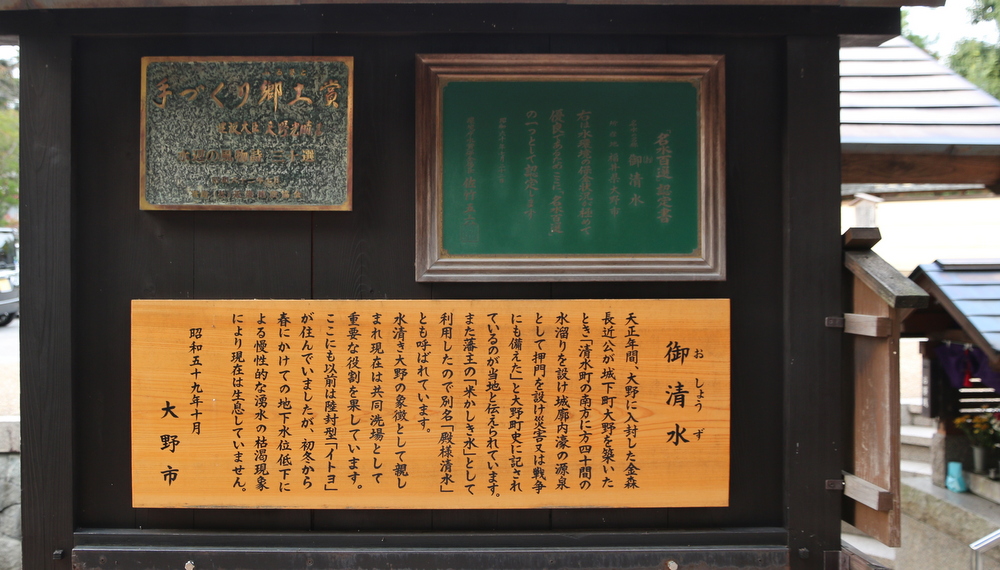 手づくり郷土賞
名水百選 認定書
御清水
福井県大野市
の一つとして認定します
御清水
おしょうず
天正年間、大野に入封した金森
長近公が城下町大野を築いた
とき「清水町の南方に方四十間の
水溜りを設け城廓内濠の源泉
として押門を設け災害又は戦争
にも備えた」と大野町史に記され
ているのが当地と伝えられています。
また藩主の「米かしき水」として
利用したので別名「殿様清水」
とも呼ばれています。
水清き大野の象徴として親し
まれ現在は共同洗場として
重要な役割を果しています。
ここにも以前は陸封型「イトヨ」
が住んでいましたが、初冬から
春にかけての地下水位低下に
よる慢性的な湧水の枯渇現象
により現在は生息していません。
昭和五十九年十月
大野市